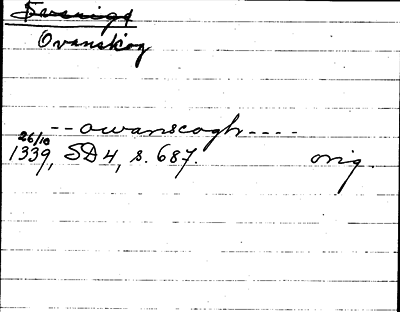 Sverige
Ovanskog
-- owanscogh ----
26/10
1339, SD 4, s. 687. orig.